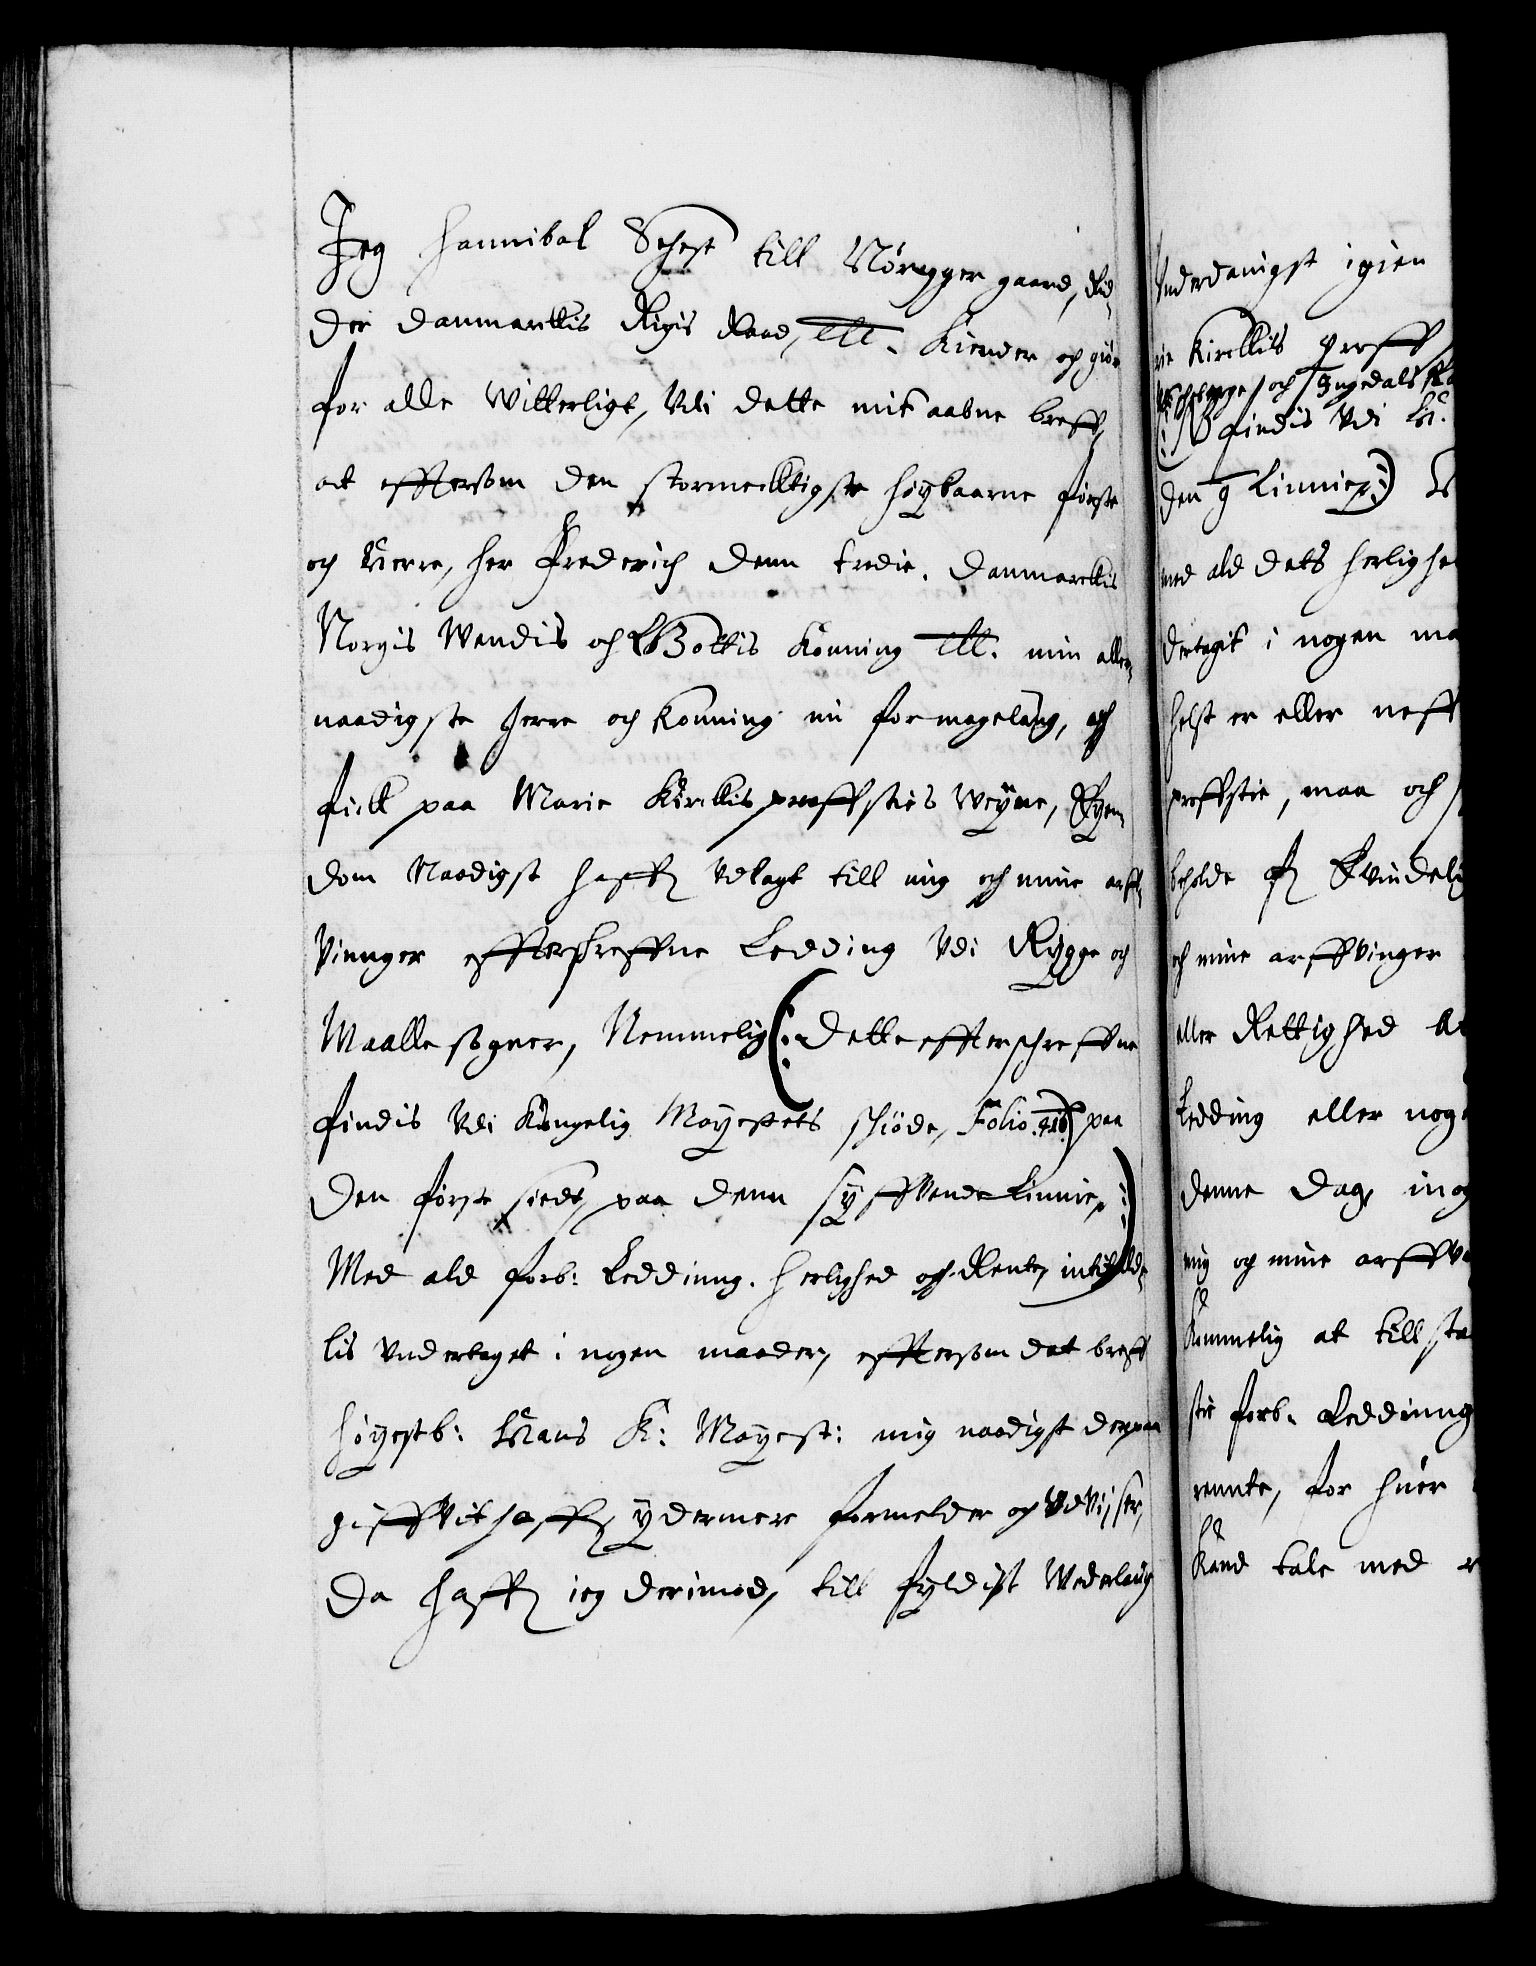 Jeg Hannibal Sehest till Nørygger gaard, Rid¬
der danmarckis Rigis Raad, etc. Kiender och giør
for alle Witterligt, Vdi dette mit aabne breff,
at effterSom den stormecktigste Høybaarne førsste
och Herre, her Frederich denn tredie. danmarckis
Norgis Wendis och Gottis Konning etc. min aller¬
naadigste herre och Konning nu formagelaug, och
fick paa Marie Kirckis proffsties Weyne, Eyen¬
dom Naadigst haffr Vdlagt till mig och mine arff¬
Vinnger effterschreffne Ledding Vdi Rygge och
Maalle sogner, Nemmelig (: dette effterschreffne
findis Vdi Kongelig Mayestets schiøde, Folio. paa
den første siede, paa denn syffvende Linnie,:)
Med ald forb: Ledding. herlighed och Rente,
lis Vndertaget i nogen maader, effterSom det breff
høyestb: Hans K: Mayest: mig naadigst derpaa
giffvit haffr, ydermere formelder och VdViser,
da haffr ieg derimod, till fyldist Wederlaug
Vnderdanigst igien
Kirckis proff
och Ingedals
findis Vdi
den 9 Linnie,:)
med ald dets herlighe
dertagit i nogen ma
helst er eller neff
proffstie, maa och
beholde
och mine arffvinger
eller Rettighed
Ledding eller nog
denne dag, i nog
mig og mine arffv
Kommelig at till sta
stie forb. Ledding
rennte, for huer
Kand tale med